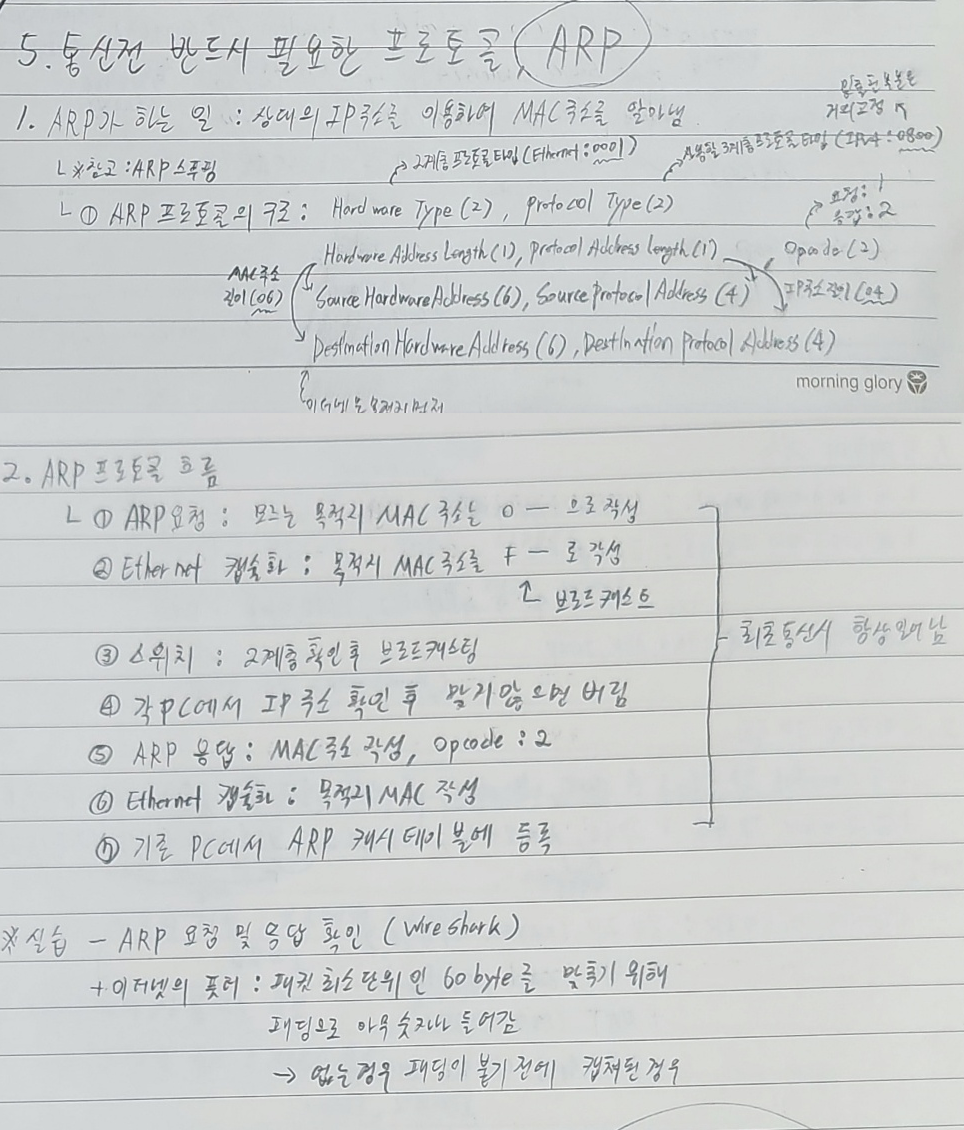 5. 통신전 반드시 필요한 프로토콜, ARP
1. ARP가 하는 일 : 상대의 IP주소를 이용하여 MAC주소를 알아냄
밑줄친 부분은
거의고정
└ ※참고 : ARP 스푸핑
2계층 프로토콜 타입(Ethernet : 0001)
사용될 3계층 프로토콜 타입 (IPv4 : 0800)
└ ① ARP 프로토콜의 구조 : Hardware Type(2), Protocol Type(2)
요청 : 1
응답 : 2
Hardware Address Length(1), Protocol Address length(1) Opcode(2)
MAC주소
길이(06)
Source Hardware Address(6), Source Protocol Address (4)
IP주소 길이(04)
Destination Hardware Address(6), Destination Protocol Address(4)
morning glory
2. ARP 프로토콜 흐름
└ ① ARP 요청 : 모르는 목적지 MAC 주소는 0 ― 으로 작성
② Ethernet 캡슐화 : 목적지 MAC주소를 F ― 로 작성
↑ 브로드캐스트
③ 스위치 : 2계층 확인 후 브로드캐스팅
최초통신시 항상 일어남
④ 각 PC에서 IP 주소 확인 후 맞지않으면 버림
⑤ ARP 응답 : MAC주소 작성, Opcode : 2
⑥ Ethernet 캡슐화 : 목적지 MAC 작성
⑦ 기존 PC에서 ARP 캐시 테이블에 등록
※실습 - ARP 요청 및 응답 확인 (Wire shark)
+ 이더넷의 풋터 : 패킷 최소단위인 60 byte를 맞추기 위해
패딩으로 아무 숫자나 들어감
→ 없는경우 패딩이 붙기 전에 캡쳐된 경우